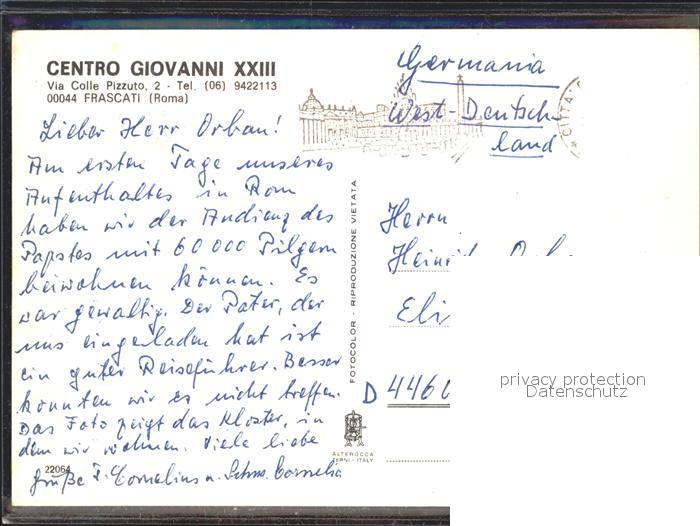 CENTRO GIOVANNI XXIII
Via Colle Pizzuto, 2 - Tel. (06) 9422113
00044 FRASCATI (Roma)
Lieber Herr Orban!
Am ersten Tage unseres
Aufenthaltes in Rom
haben wir der Audienz des
Papstes mit 60 000 Pilgern
beiwohnen können. Es
war gewaltig. Der Pater, der
uns eingeladen hat ist
ein guter Reiseführer. Besser
konnten wir es nicht treffen.
Das Foto zeigt das Kloster, in
dem wir wohnen. Viele liebe
Grüße P. Cornelius u. Schw. Cornelia
22064
FOTOCOLOR - RIPRODUZIONE VIETATA
ALTEROCCA
TERNI - ITALY
CITTA
Germania
West-Deutsch-
land
Herrn
D 4460
privacy protection
Datenschutz